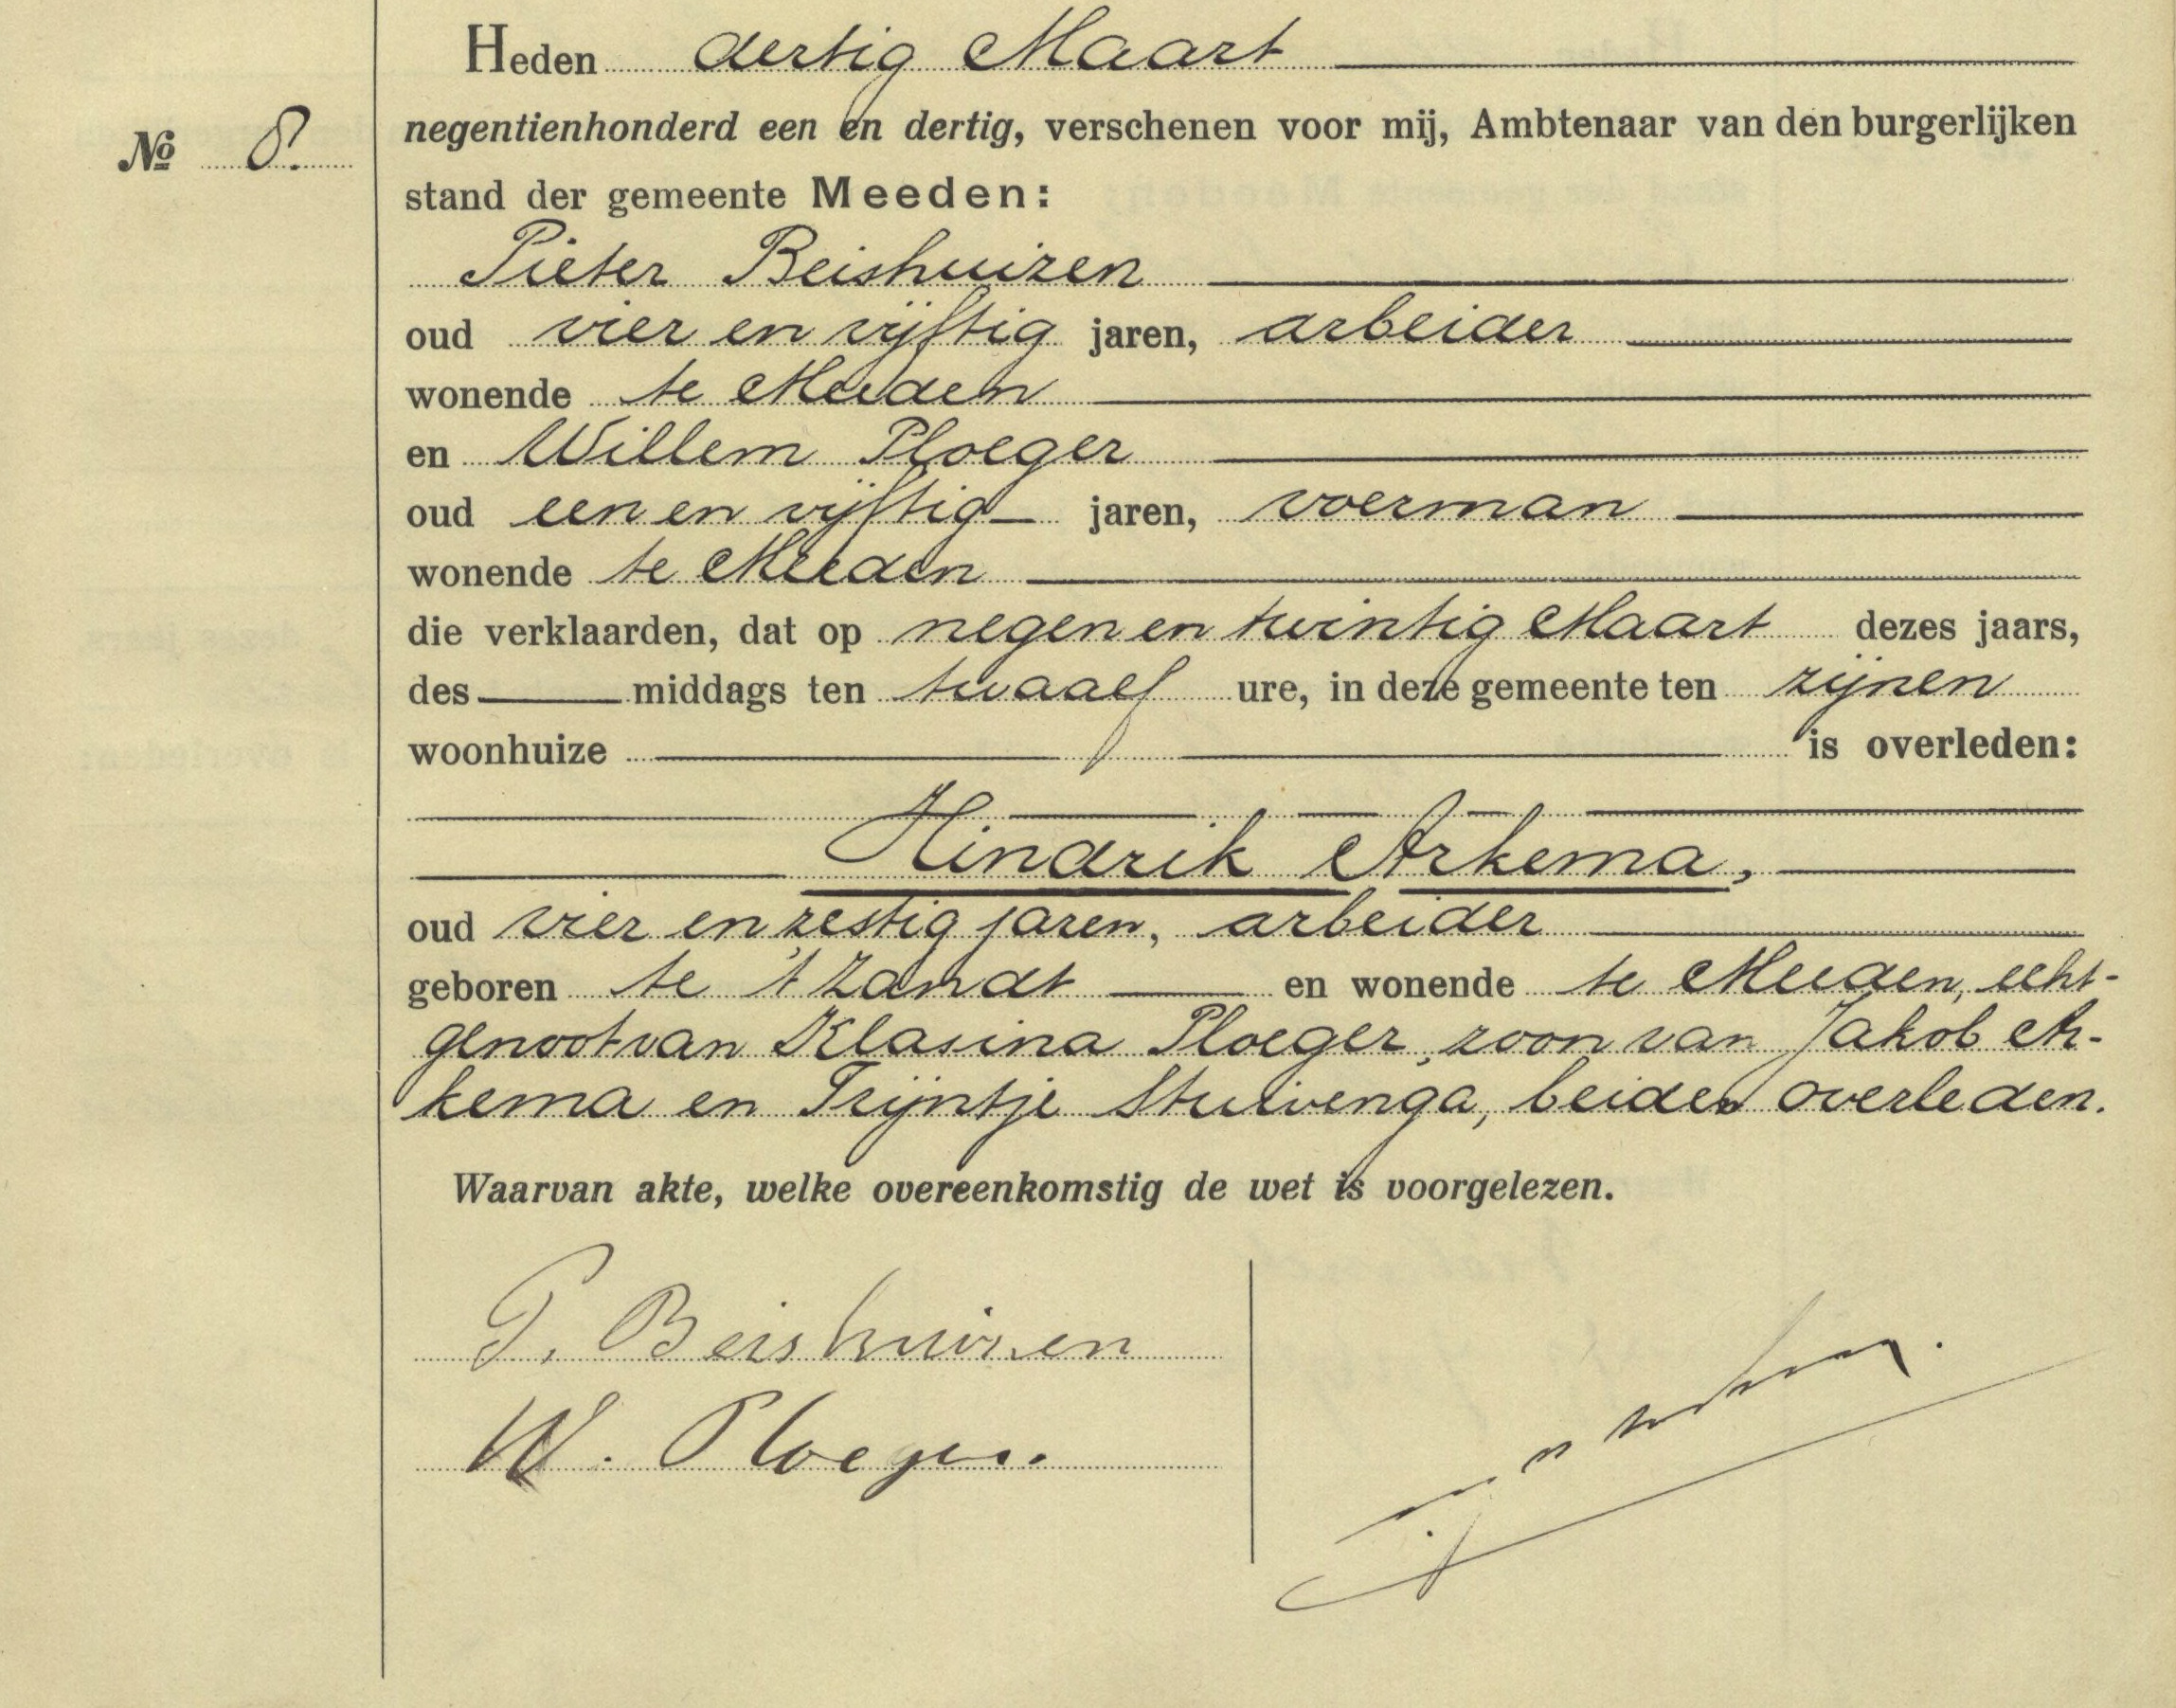 Heden dertig Maart
No 8.
negentienhonderd een en dertig, verschenen voor mij, Ambtenaar van den burgerlijken
stand der gemeente Meeden:
Pieter Beishuizen
oud vier en vijftig jaren, arbeider
wonende te Meeden
en Willem Ploeger
oud een en vijftig jaren, voerman
wonende te Meeden
die verklaarden, dat op negen en twintig Maart dezes jaars,
des middags ten twaalf ure, in deze gemeente ten zijnen
woonhuize is overleden:
Hindrik Arkema,
oud vier en zestig jaren, arbeider
geboren te 't Zandt en wonende te Meeden, echt-
genoot van Klasina Ploeger, zoon van Jakob Ar-
kema en Trijntje Stuivenga, beiden overleden.
Waarvan akte, welke overeenkomstig de wet is voorgelezen.
P. Beishuizen
W. Ploeger.